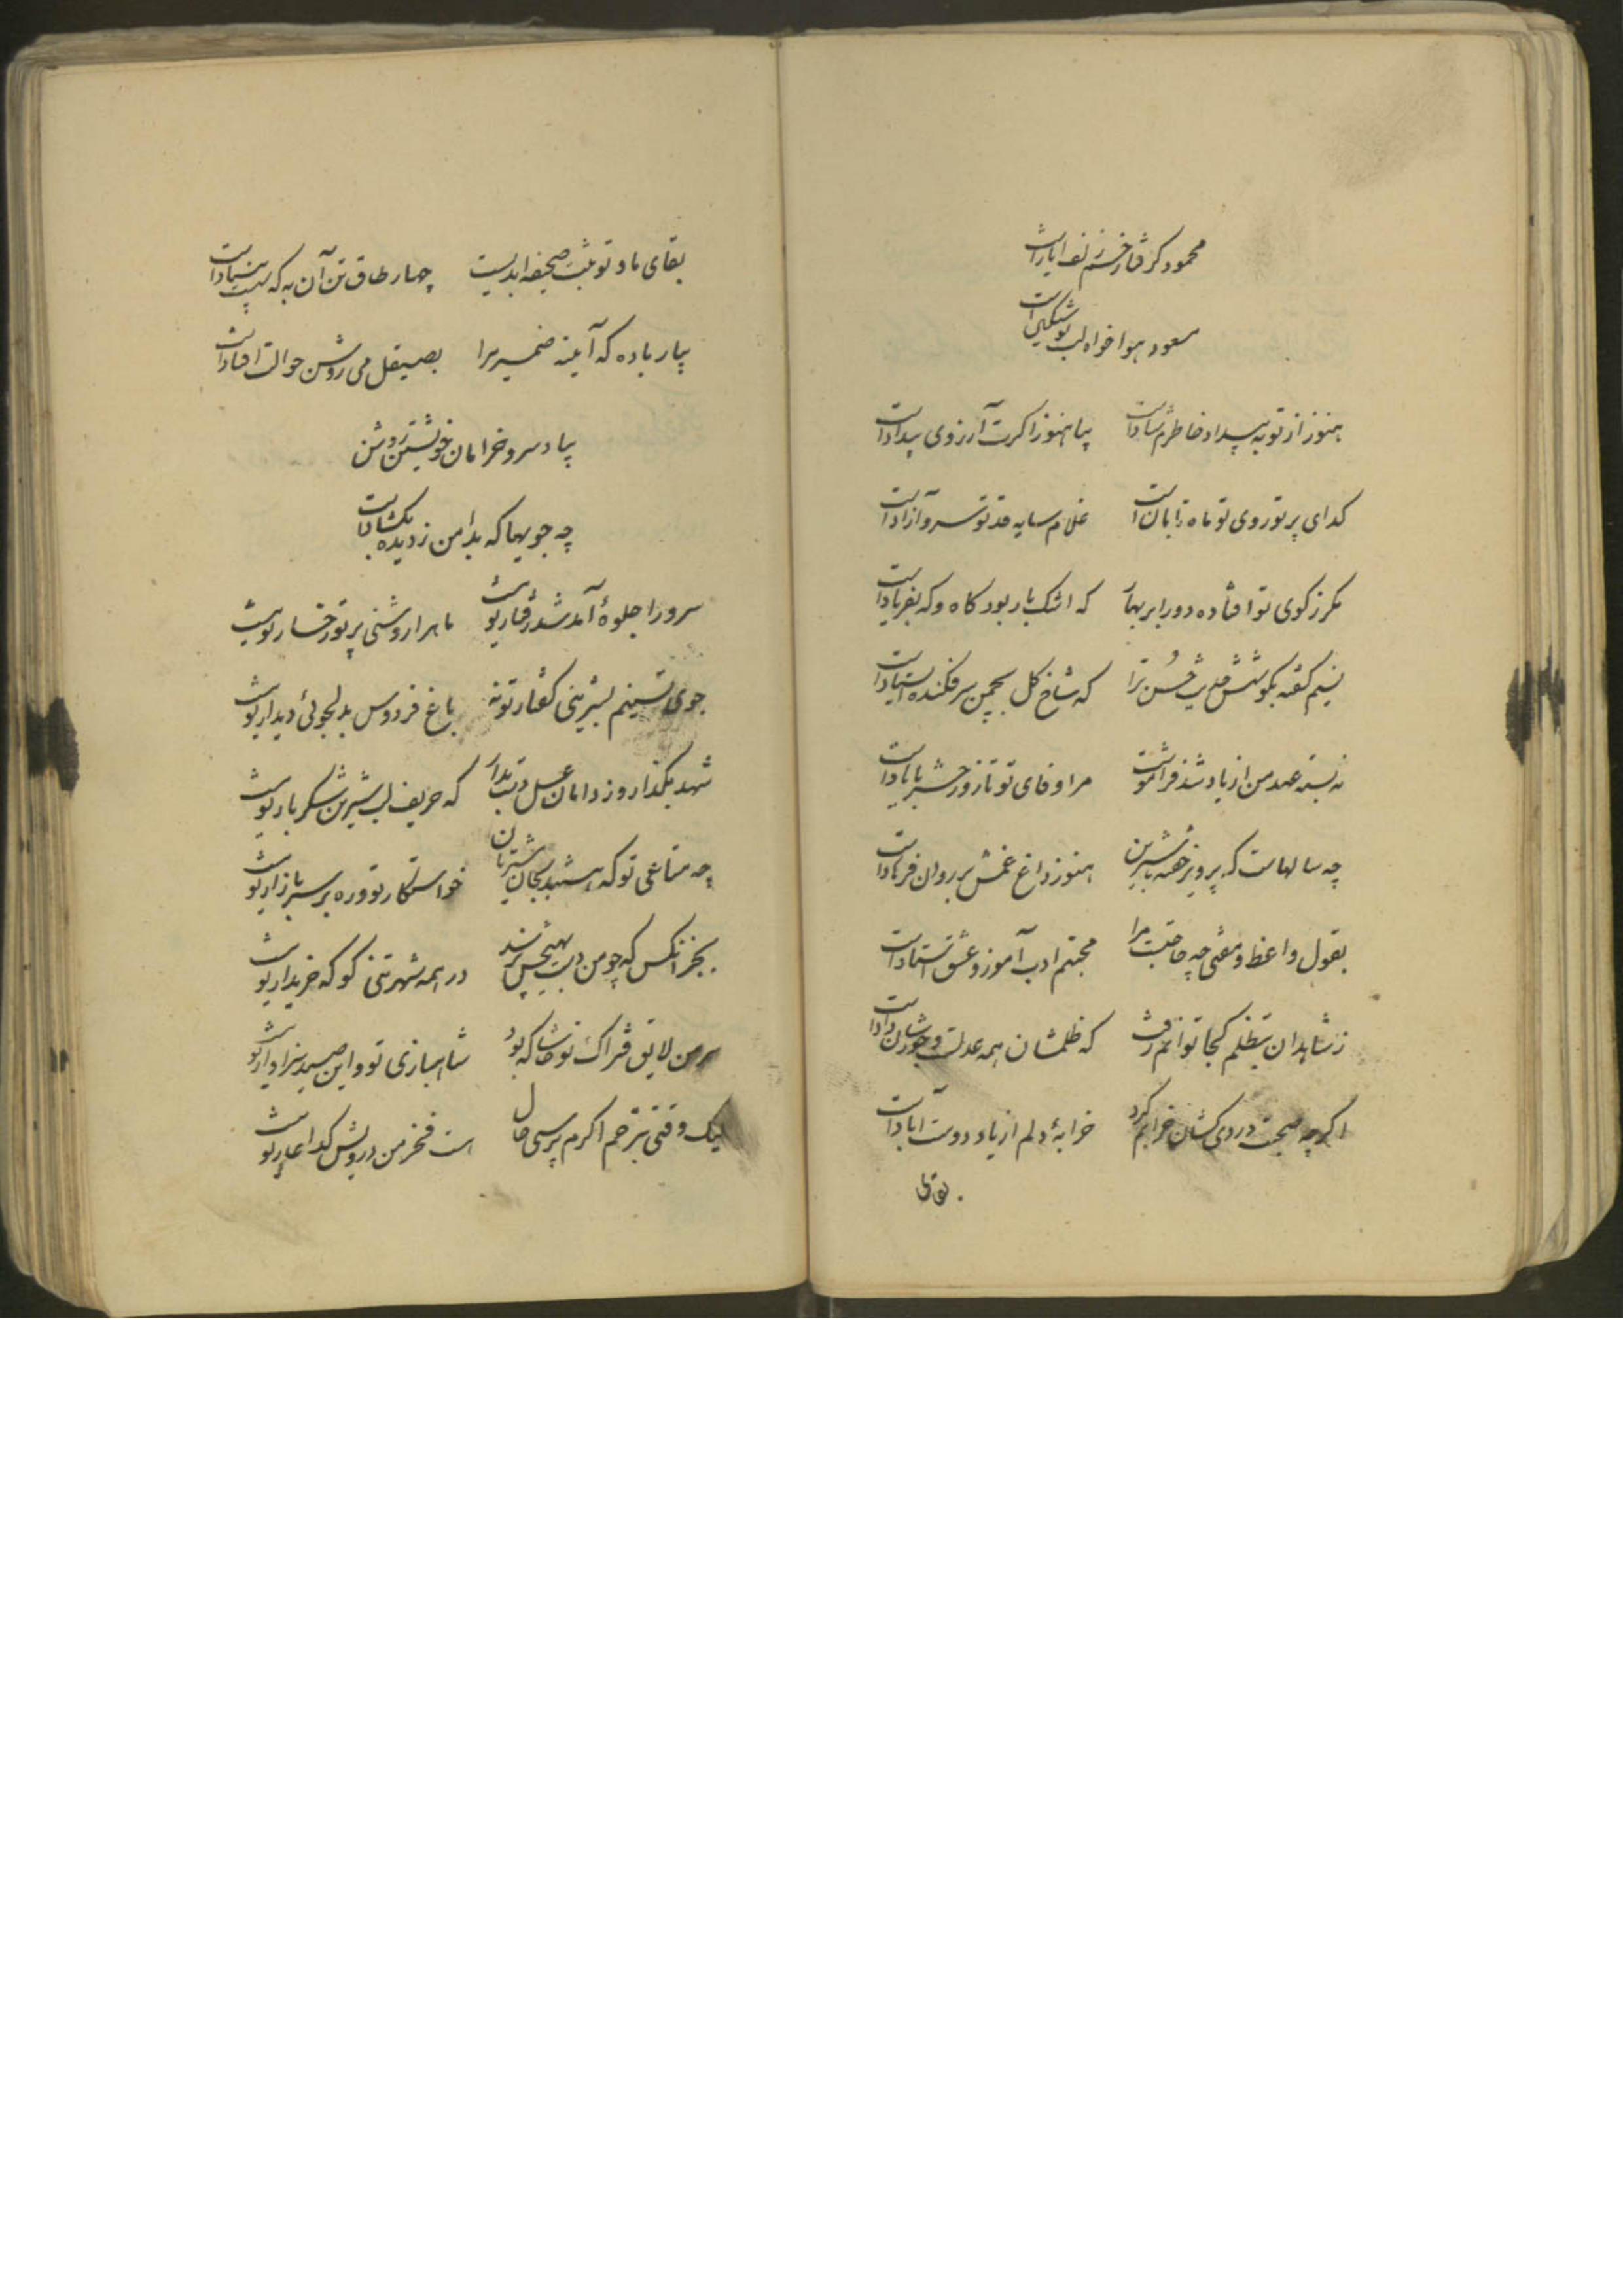 محمود گرفتار خم زلف ایاز است
مسعود هواخواه لب توشکین است
هنوز از تو به بیداد خاطرم شادا ست بیا هنوز اکرت آرزوی بیداد است
کدای پرتو روی تو ماه تابان است غلام سایه قد تو سرو آزاد است
مکر ز کوی تو افتاده دور ابر بهار که اشک بار بود کاه و که بفریاد است
نسیم کفته بکوشش حدیث حسن ترا که شاخ کل بچمن سر فکنده استاد است
نه بسته عهد من از یاد شد فراموشت مرا وفای تو تا روز حشر با یاد است
چه سالهاست که پرویز خفته با شیرین هنوز داغ غمش بر روان فرهاد است
بقول واعظ و مفتی چه حاجتست مرا محبتم ادب آموز و عشق استاد است
ز شاهدان بتظلم کجا توانم رفت که ظلمشان همه عدلست و جورشان داد است
اکرچه صحبت دردی کشان خرابم کرد خرابهٔ دلم از یاد دوست آباد است
بقای
بقای ما و تو ثبت صحیفه ابدیست چهار طاق تن آن به که سست بنیاد است
بیار باده که آیینه ضمیر مرا بصیقل می روشن حوالت افتاد است
بیاد سرو خرامان خویشتن روشن
چه جویها که بدامن ز دیده بکشاد است
سرو را جلوهٔ آمد شد رفتار تو نیست ماه را روشنی پرتو رخسار تو نیست
جوی تسنیم بشیرینی کفتار تو نه باغ فردوس بدلجوئی دیدار تو نیست
شهد بکذار و ز دامان عسل دست بدار که حریف لب شیرین شکربار تو نیست
چه متاعی تو که هستند بجان مشتریان خواستکار تو و ره بر سر بازار تو نیست
بجز آنکس که چو من دست بهیچش نرسد در همه شهر تنی کو که خریدار تو نیست
سر من لایق فتراک تو حاشا که بود شاهبازی تو و این صید سزاوار تو نیست
لیک وقتی بترحم اکرم پرسی حال است فخر من درویش کدا عار تو نیست